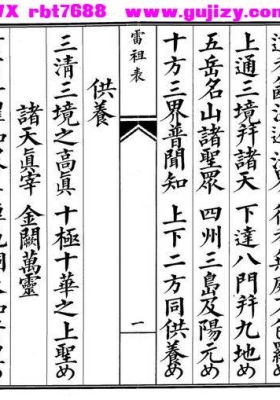 VX rbt7688 www.gujizy.com
上通三境幷諸天 下達八門幷九地め
五岳名山諸聖眾 四州三島及陽元め
十方三界普聞知 上下二方同供養め
雷祖表 一
供養
三清三境之高眞 十極十華之上聖め
諸天眞宰 金闕萬靈